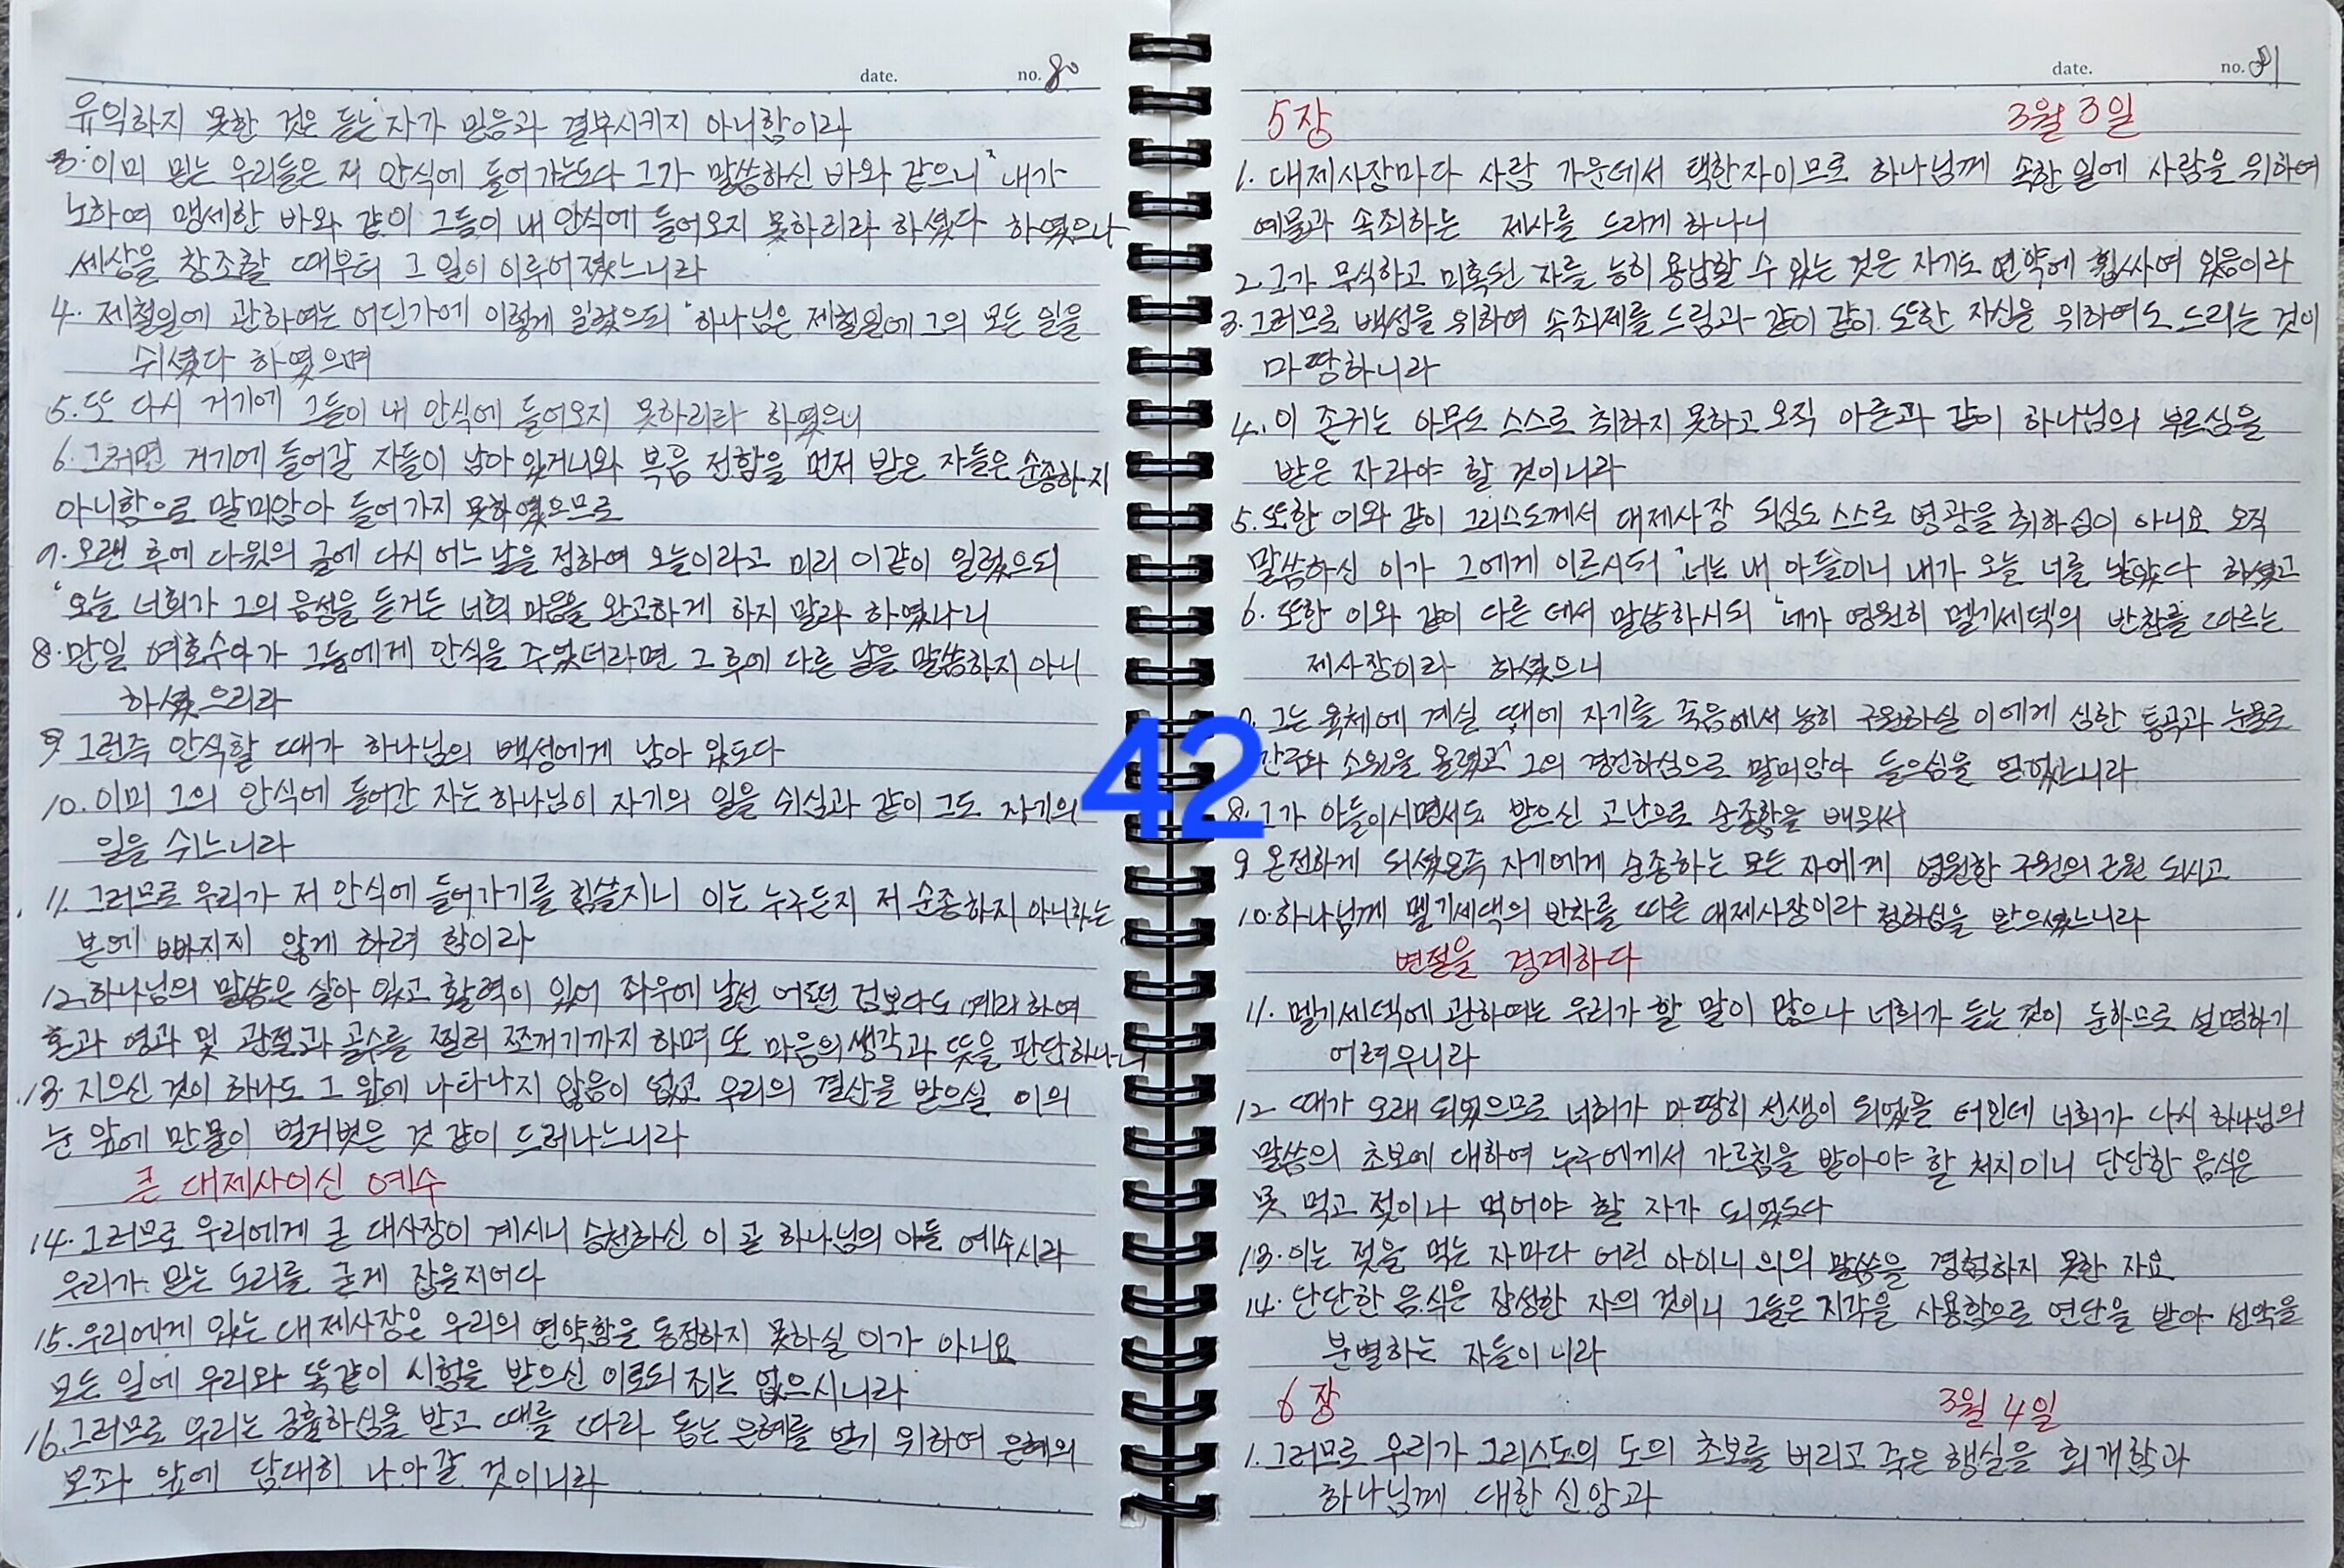 date. no. 80
유익하지 못한 것은 듣는 자가 믿음과 결부시키지 아니함이라
3. 이미 믿는 우리들은 저 안식에 들어가는도다 그가 말씀하신 바와 같으니 "내가
노하여 맹세한 바와 같이 그들이 내 안식에 들어오지 못하리라 하셨다 하였으나
세상을 창조할 때부터 그 일이 이루어졌느니라
4. 제칠일에 관하여는 어딘가에 이렇게 일렀으되 "하나님은 제칠일에 그의 모든 일을
쉬셨다 하였으며
5. 또 다시 거기에 그들이 내 안식에 들어오지 못하리라 하였으니
6. 그러면 거기에 들어갈 자들이 남아 있거니와 복음 전함을 먼저 받은 자들은 순종하지
아니함으로 말미암아 들어가지 못하였으므로
7. 오랜 후에 다윗의 글에 다시 어느 날을 정하여 오늘이라고 미리 이같이 일렀으되
"오늘 너희가 그의 음성을 듣거든 너희 마음을 완고하게 하지 말라 하였나니
8. 만일 여호수아가 그들에게 안식을 주었더라면 그 후에 다른 날을 말씀하지 아니
하셨으리라
9 그런즉 안식할 때가 하나님의 백성에게 남아 있도다
10. 이미 그의 안식에 들어간 자는 하나님이 자기의 일을 쉬심과 같이 그도 자기의
일을 쉬느니라
11. 그러므로 우리가 저 안식에 들어가기를 힘쓸지니 이는 누구든지 저 순종하지 아니하는
본에 빠지지 않게 하려 함이라
12. 하나님의 말씀은 살아 있고 활력이 있어 좌우에 날선 어떤 검보다도 예리하여
혼과 영과 및 관절과 골수를 찔러 쪼개기까지 하며 또 마음의 생각과 뜻을 판단하나니
13. 지으신 것이 하나도 그 앞에 나타나지 않음이 없고 우리의 결산을 받으실 이의
눈 앞에 만물이 벌거벗은 것 같이 드러나느니라
큰 대제사이신 예수
14. 그러므로 우리에게 큰 대사장이 계시니 승천하신 이 곧 하나님의 아들 예수시라
우리가 믿는 도리를 굳게 잡을지어다
15. 우리에게 있는 대제사장은 우리의 연약함을 동정하지 못하실 이가 아니요
모든 일에 우리와 똑같이 시험을 받으신 이로되 죄는 없으시니라
16. 그러므로 우리는 긍휼하심을 받고 때를 따라 돕는 은혜를 얻기 위하여 은혜의
보좌 앞에 담대히 나아갈 것이니라
42
date. no. 81
5장 3월 3일
1. 대제사장마다 사람 가운데서 택한자이므로 하나님께 속한 일에 사람을 위하여
예물과 속죄하는 제사를 드리게 하나니
2. 그가 무식하고 미혹된 자를 능히 용납할 수 있는 것은 자기도 연약에 휩싸여 있음이라
3. 그러므로 백성을 위하여 속죄제를 드림과 같이 같이 또한 자신을 위하여도 드리는 것이
마땅하니라
4. 이 존귀는 아무도 스스로 취하지 못하고 오직 아론과 같이 하나님의 부르심을
받은 자라야 할 것이니라
5. 또한 이와 같이 그리스도께서 대제사장 되심도 스스로 영광을 취하심이 아니요 오직
말씀하신 이가 그에게 이르시되 "너는 내 아들이니 내가 오늘 너를 낳았다 하셨고
6. 또한 이와 같이 다른 데서 말씀하시되 "네가 영원히 멜기세덱의 반차를 따르는
제사장이라 하셨으니
7. 그는 육체에 계실 때에 자기를 죽음에서 능히 구원하실 이에게 심한 통곡과 눈물로
간구와 소원을 올렸고 그의 경건하심으로 말미암아 들으심을 얻었느니라
8. 그가 아들이시면서도 받으신 고난으로 순종함을 배워서
9 온전하게 되셨은즉 자기에게 순종하는 모든 자에게 영원한 구원의 근원 되시고
10. 하나님께 멜기세덱의 반차를 따른 대제사장이라 칭하심을 받으셨느니라
변절을 경계하다
11. 멜기세덱에 관하여는 우리가 할 말이 많으나 너희가 듣는 것이 둔하므로 설명하기
어려우니라
12 때가 오래 되었으므로 너희가 마땅히 선생이 되었을 터인데 너희가 다시 하나님의
말씀의 초보에 대하여 누구에게서 가르침을 받아야 할 처지이니 단단한 음식은
못 먹고 젖이나 먹어야 할 자가 되었도다
13. 이는 젖을 먹는 자마다 어린 아이니 의의 말씀을 경험하지 못한 자요
14. 단단한 음식은 장성한 자의 것이니 그들은 지각을 사용함으로 연단을 받아 선악을
분별하는 자들이니라
6장 3월 4일
1. 그러므로 우리가 그리스도의 도의 초보를 버리고 죽은 행실을 회개함과
하나님께 대한 신앙과